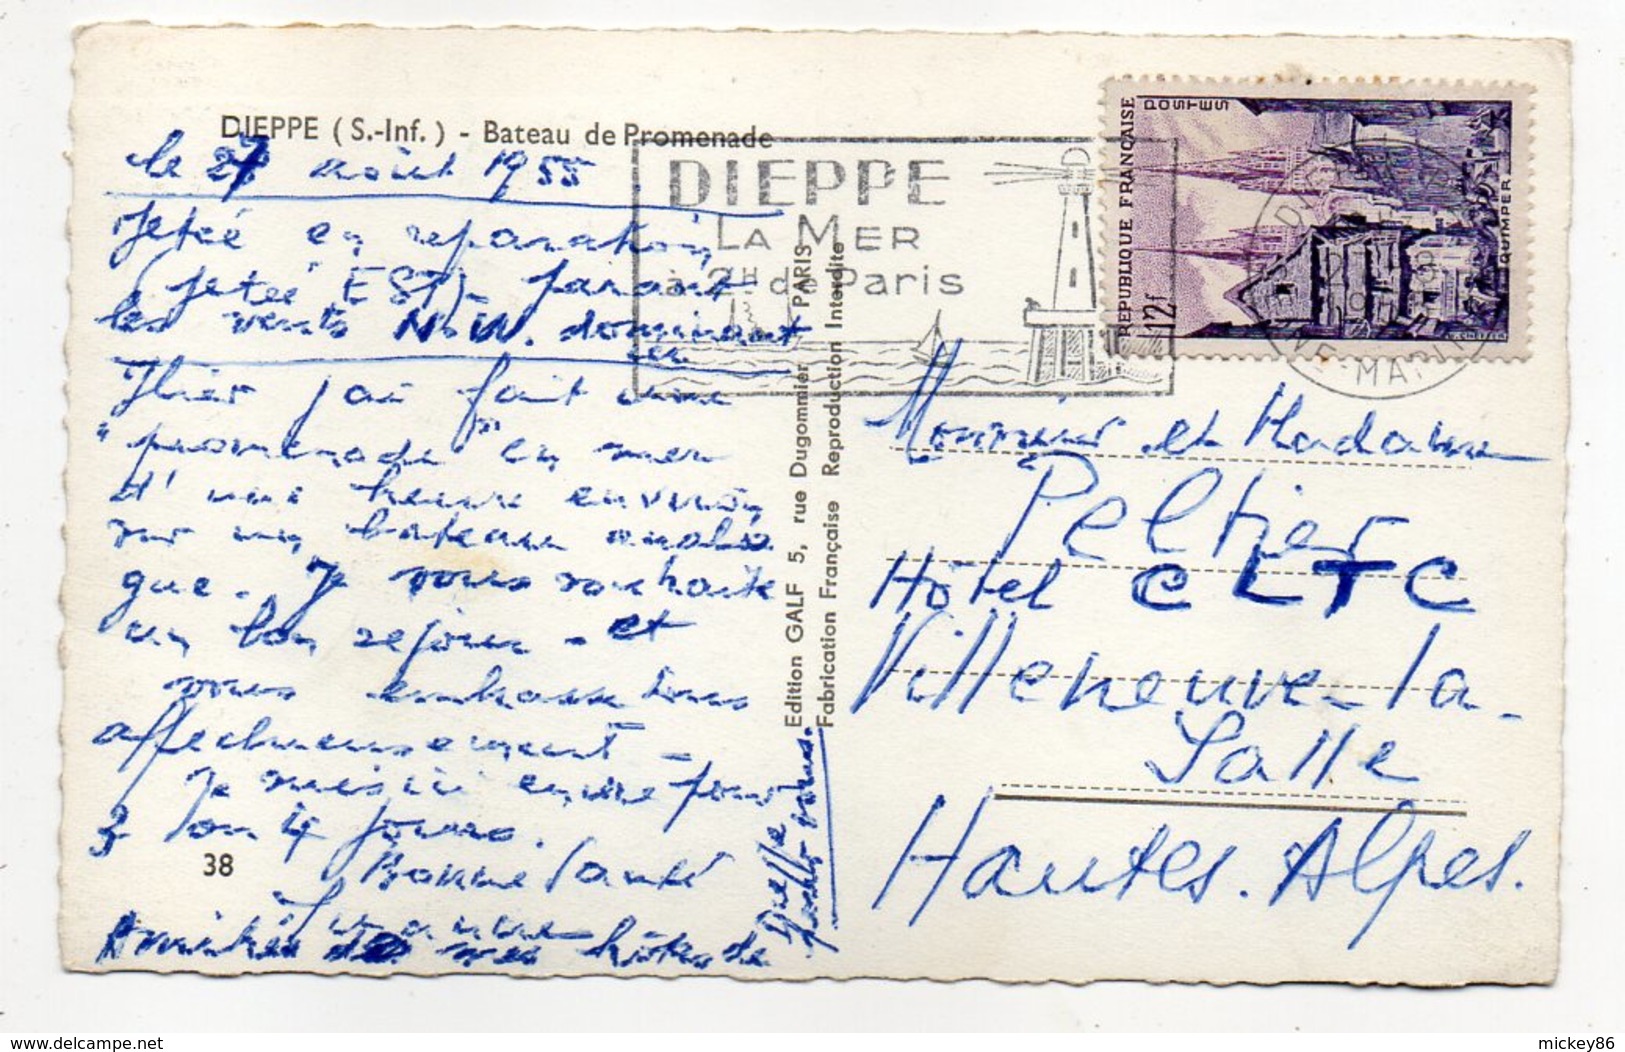 DIEPPE (S.-Inf.) - Bateau de Promenade
le 27 août 1955
Jetée en réparation
(Jetée EST) - parant
les vents N.W. dominant
Hier j'ai fait une
"promenade" en mer
d'une heure environ
sur un bateau analo
gue. Je vous souhaite
un bon séjour - et
vous embrasse tous
affectueusement -
Je suis ici encore pour
3 ou 4 jours.
Bonne santé
38
Amitiés de mes hôtes de
Dieppe
pour vous.
Edition GALF 5, rue Dugommier PARIS
Fabrication Française Reproduction Interdite
DIEPPE
LA MER
à 2H de Paris
REPUBLIQUE FRANÇAISE
POSTES
12f
QUIMPER
Monsieur et Madame
Peltier
Hôtel CLTC
Villeneuve-la-
Salle
Hautes-Alpes.
delcampe.net
mickey86